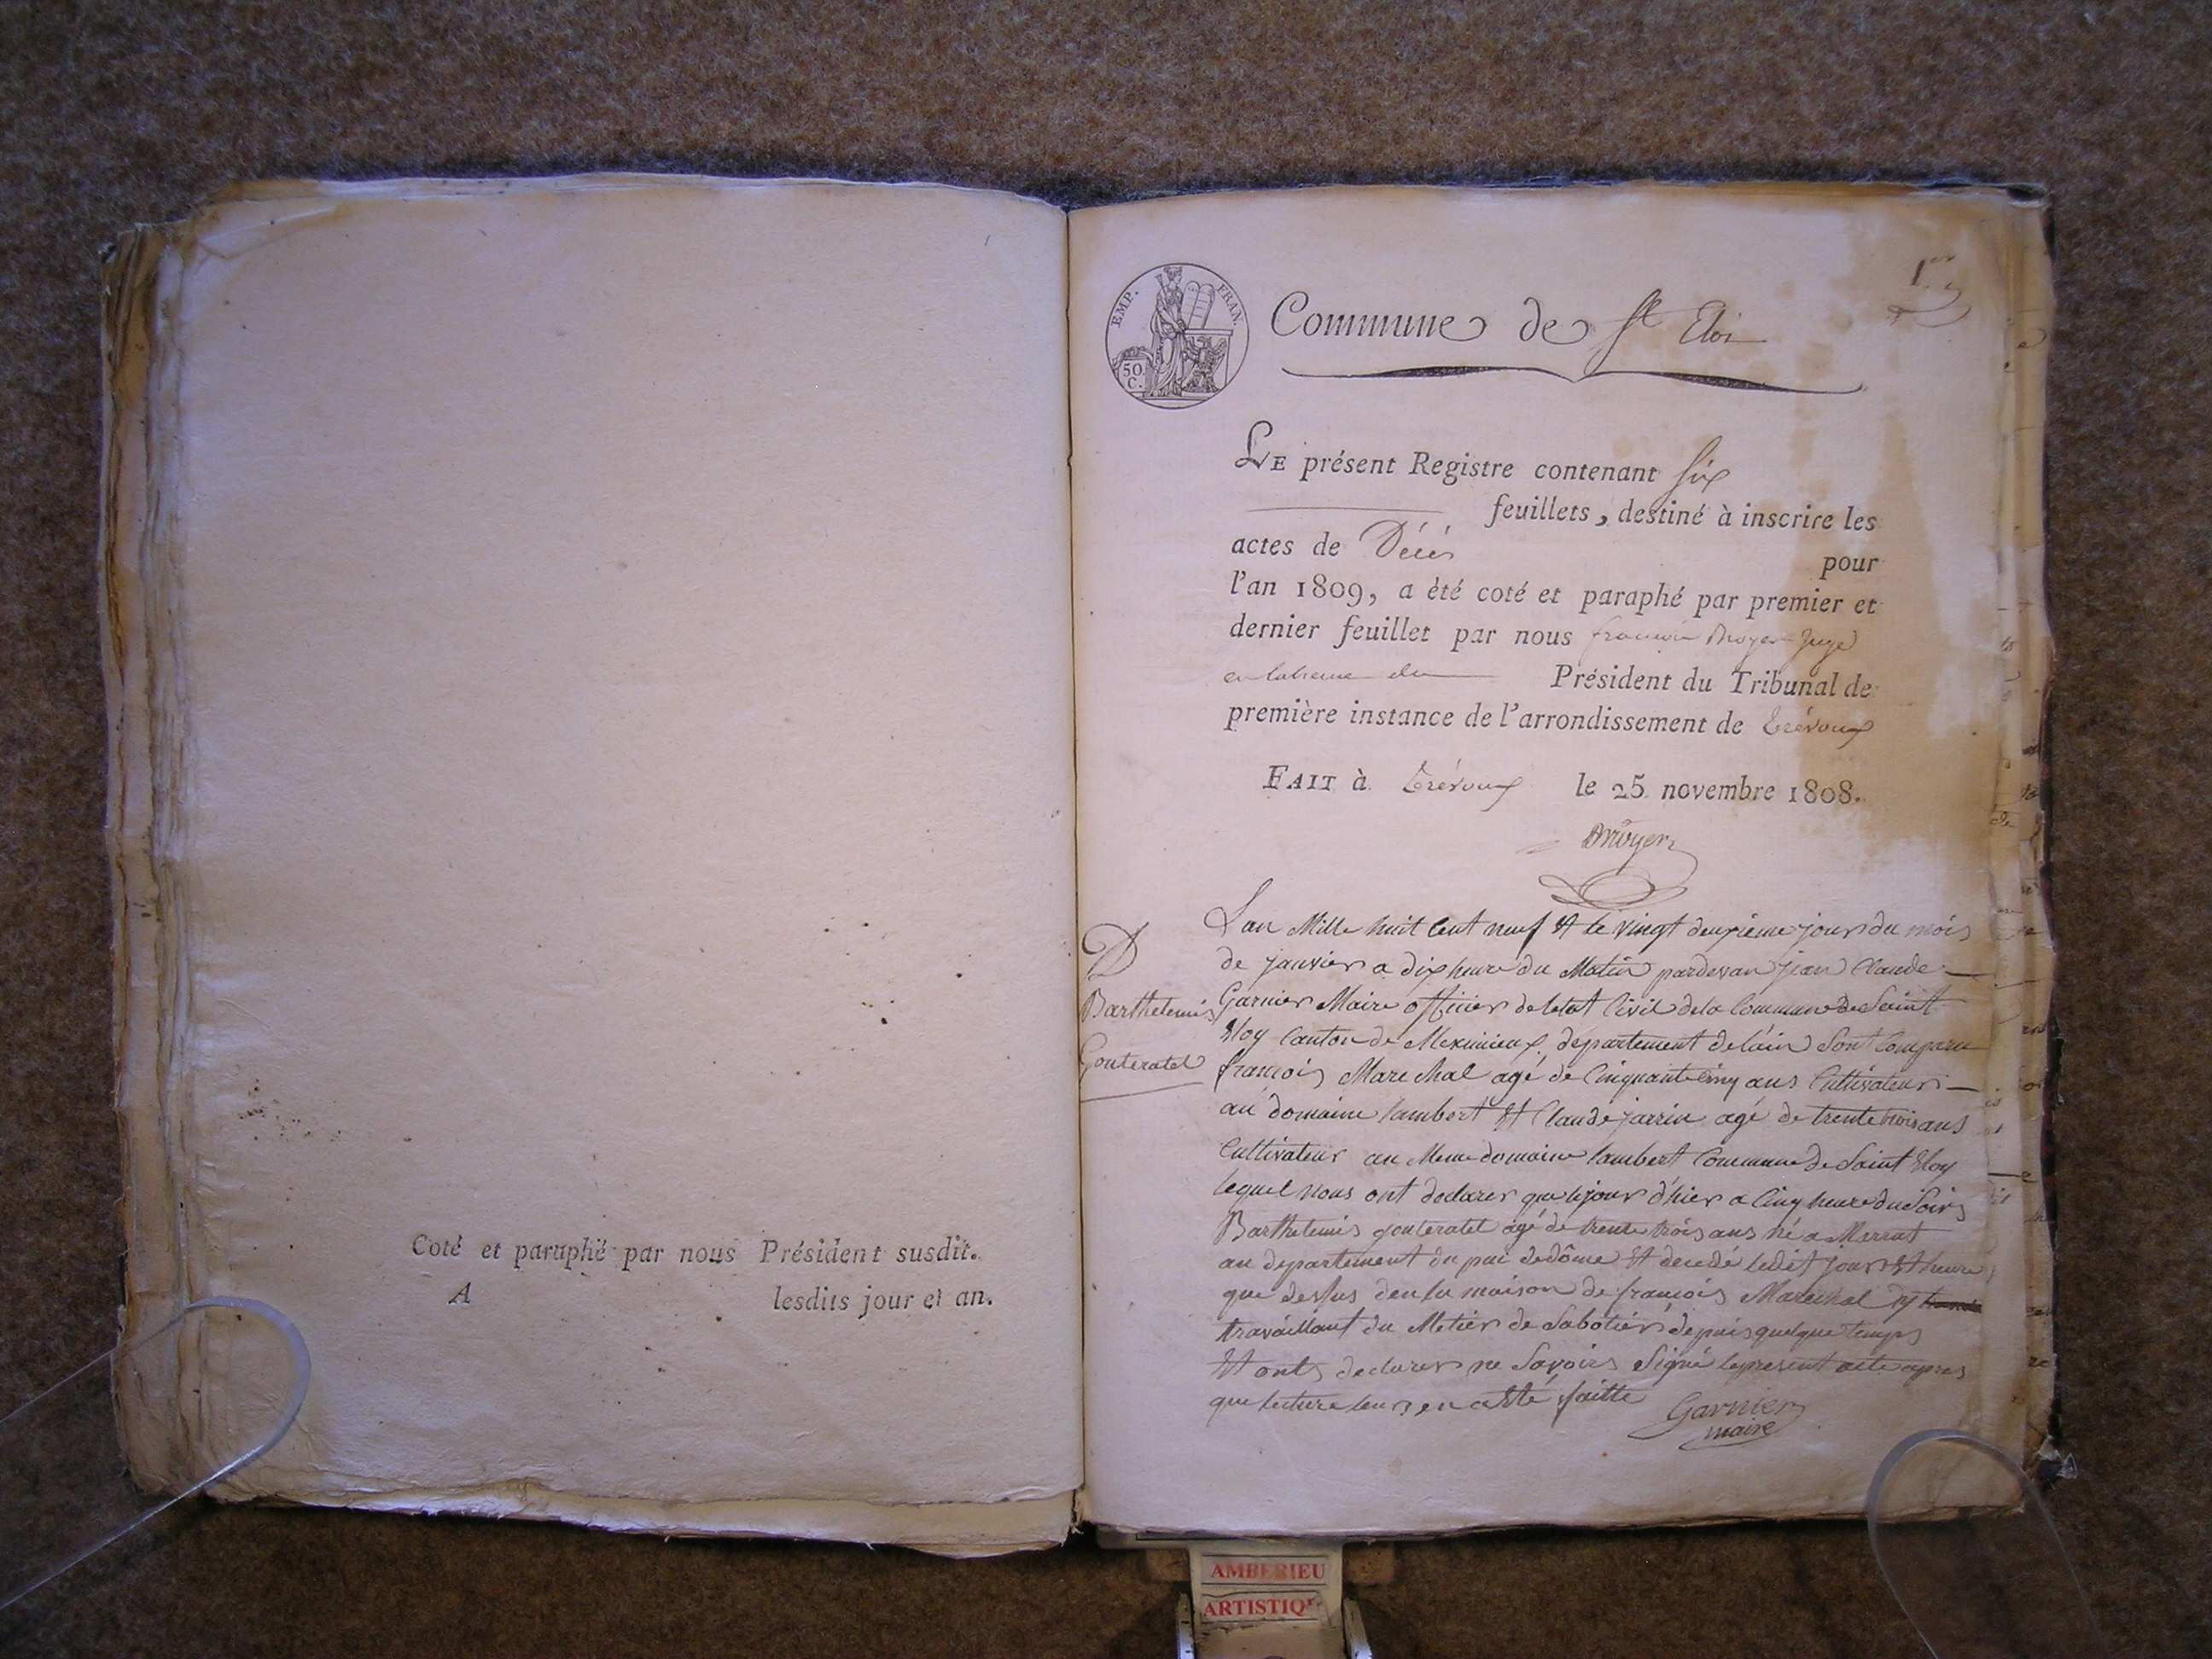 Coté et paraphé par nous Président susdit.
A lesdits jour et an.
1er
EMP. FRAN.
50 C.
Commune de St Eloi
LE présent Registre contenant six
feuillets, destiné à inscrire les
actes de Décés
pour
l'an 1809, a èté coté et paraphé par premier et
dernier feuillet par nous françois Moyer Juge
en labsence du Président du Tribunal de
première instance de l'arrondissement de trévoux
FAIT à trévoux le 25 novembre 1808.
Moyer
D
Barthelemis
Gouteratel
Lan Mille huit Cent neuf Et le vingt deuxieme jour du mois
de janvier a dix heure du Matin pardevan jean Claude
Garnier Maire officier de letat Civil de la Commune de Saint
Eloy Canton de Meximieux, département de lain Sont Comparu
francois Marechal agé de Cinquante Cinq ans Cultivateur
au domaine lambert Et Claude jarrin agé de trente trois ans
Cultivateur au Meme domaine lambert Commune de Saint Eloy
lequel nous ont declarer que le jour d'hier a Cinq heure du Soir
Barthelemis gouteratel agé de trente trois ans né a Merrat
au departement du pui dedôme Et decedé ledit jour Et heure
que dessus den la maison de francois Marechal y
travaillant du Metier de Sabotier depuis quelque temps
Et onts declarer ne Savoir Signé le present acte apres
que lecture leur en a Eté faitte
Garnier
maire
AMBERIEU
ARTISTIQ